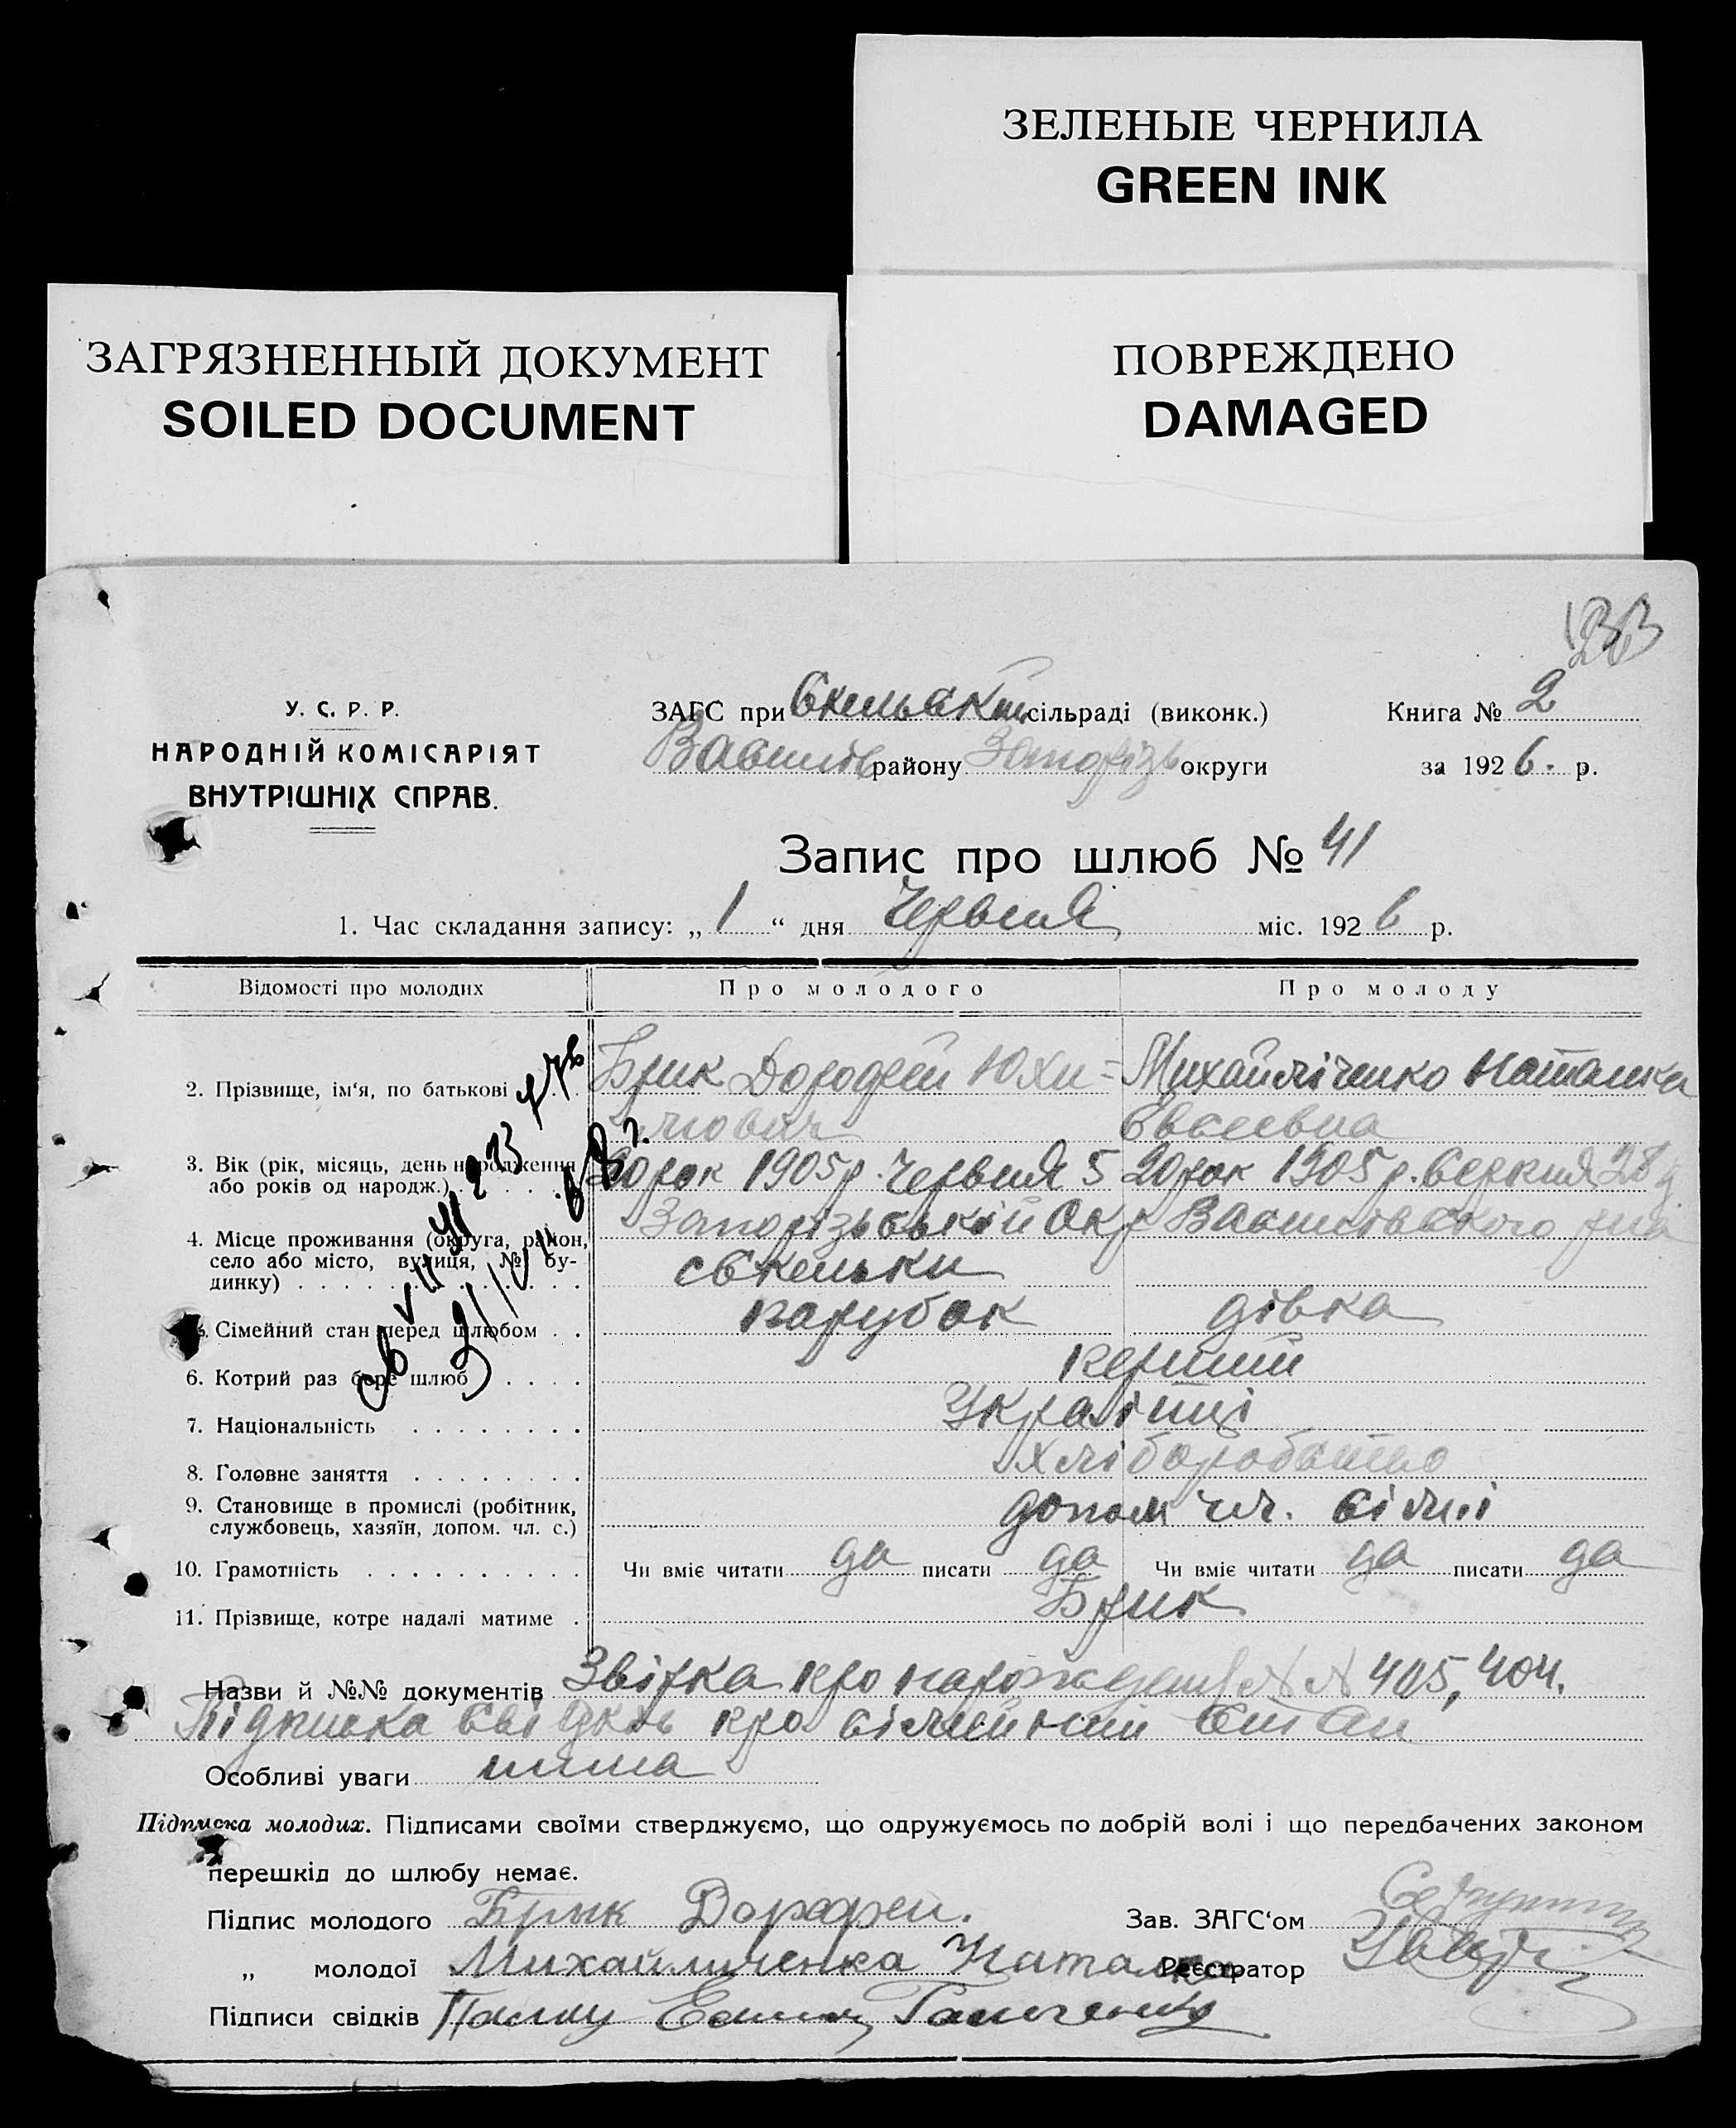 ЗЕЛЕНЫЕ ЧЕРНИЛА
GREEN INK
ЗАГРЯЗНЕННЫЙ ДОКУМЕНТ
SOILED DOCUMENT
ПОВРЕЖДЕНО
DAMAGED
У. С. Р. Р.
НАРОДНІЙ КОМІСАРІЯТ
ВНУТРІШНІХ СПРАВ.
ЗАГС при Скельській сільраді (виконк.)
Книга № 2
Василів району Запоріз округи
за 1926. р.
Запис про шлюб № 41
1. Час складання запису: „ 1 “ дня Червня міс. 1926 р.
Відомості про молодих
Про молодого
Про молоду
2. Прізвище, ім'я, по батькові
Брик Дорофей Юхи-
мович
Михайліченко Наталка
Евсеевна
3. Вік (рік, місяць, день народження або років од народж.)
20 рок 1905 р. Червня 5
20 рок 1905 р. Серпня 28 д
4. Місце проживання (округа, район, село або місто, вулиця, № будинку)
Запорізський Окр Василівського рна
с Скельки
5. Сімейний стан перед шлюбом
парубок
дівка
6. Котрий раз бере шлюб
перший
7. Національність
Українці
8. Головне заняття
хліборобство
9. Становище в промислі (робітник, службовець, хазяїн, допом. чл. с.)
допом чл. сімї
10. Грамотність
Чи вміє читати да писати да
Чи вміє читати да писати да
11. Прізвище, котре надалі матиме
Брик
Назви й №№ документів Звірка про народження № № 405, 404.
Підписка свідків про сімейний стан
Особливі уваги нима
Підписка молодих. Підписами своїми стверджуємо, що одружуємось по добрій волі і що передбачених законом
перешкід до шлюбу немає.
Підпис молодого Брык Дорофей.
Зав. ЗАГС'ом
„ молодої Михайличенка Наталка
Реєстратор
Підписи свідків